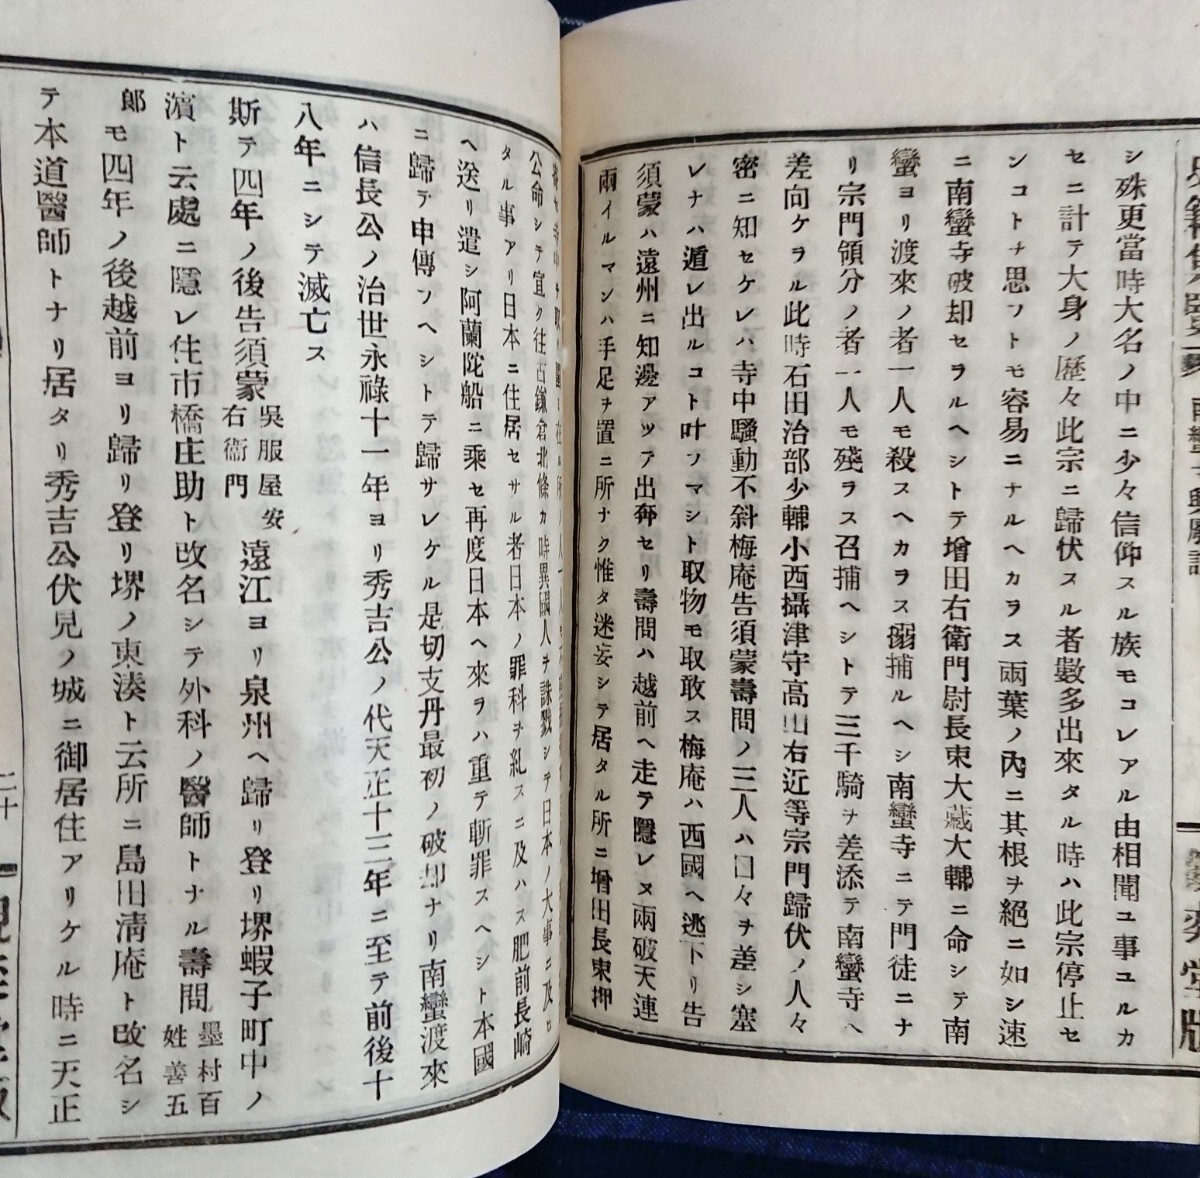 シ殊更當時大名ノ中ニ少々信仰スル族モコレアル由相聞ユ事ユルカ
セニ計テ大身ノ歷々此宗ニ歸伏スル者數多出來タル時ハ此宗停止セ
ンコトナ思フトモ容易ニナルヘカヲス兩葉ノ內ニ其根ヲ絕ニ如シ速
ニ南蠻寺破却セラルヘシトテ增田右衛門尉長東大藏大輔ニ命シテ南
蠻ヨリ渡來ノ者一人モ殺スヘカラス搦捕ルヘシ南蠻寺ニテ門徒ニナ
リ宗門領分ノ者一人モ殘ラス召捕ヘシトテ三千騎ヲ差添テ南蠻寺ヘ
差向ケラル此時石田治部少輔小西攝津守高山右近等宗門歸伏ノ人々
密ニ知セケレハ寺中騷動不斜梅庵告須蒙壽問ノ三人ハ口々ヲ差シ塞
レナハ遁レ出ルコト叶フマシト取物モ取敢ス梅庵ハ西國ヘ逃下リ告
須蒙ハ遠州ニ知邊アツテ出奔セリ壽問ハ越前ヘ走テ隱レヌ兩破天連
兩イルマンハ手足ヲ置ニ所ナク惟タ迷妄シテ居タル所ニ增田長東押
公命シテ宜ク往古鎌倉北條カ時異國人ヲ誅戮シテ日本ノ大事ニ及セ
タル事アリ日本ニ住居セサル者日本ノ罪科ヲ糺スニ及ハス肥前長崎
ヘ送リ遣シ阿蘭陀船ニ乘セ再度日本ヘ來ヲハ重テ斬罪スヘシト本國
ニ歸テ申傳フヘシトテ歸サレケル是切支丹最初ノ破却ナリ南蠻渡來
ハ信長公ノ治世永祿十一年ヨリ秀吉公ノ代天正十三年ニ至テ前後十
八年ニシテ滅亡ス
斯テ四年ノ後告須蒙吳服屋安右衞門遠江ヨリ泉州ヘ歸リ登リ堺蝦子町中ノ
濱ト云處ニ隱レ住市橋庄助ト改名シテ外科ノ醫師トナル壽問墨村百姓善五
郞モ四年ノ後越前ヨリ歸リ登リ堺ノ東湊ト云所ニ島田淸庵ト改名シ
テ本道醫師トナリ居タリ秀吉公伏見ノ城ニ御居住アリケル時ニ天正
二十